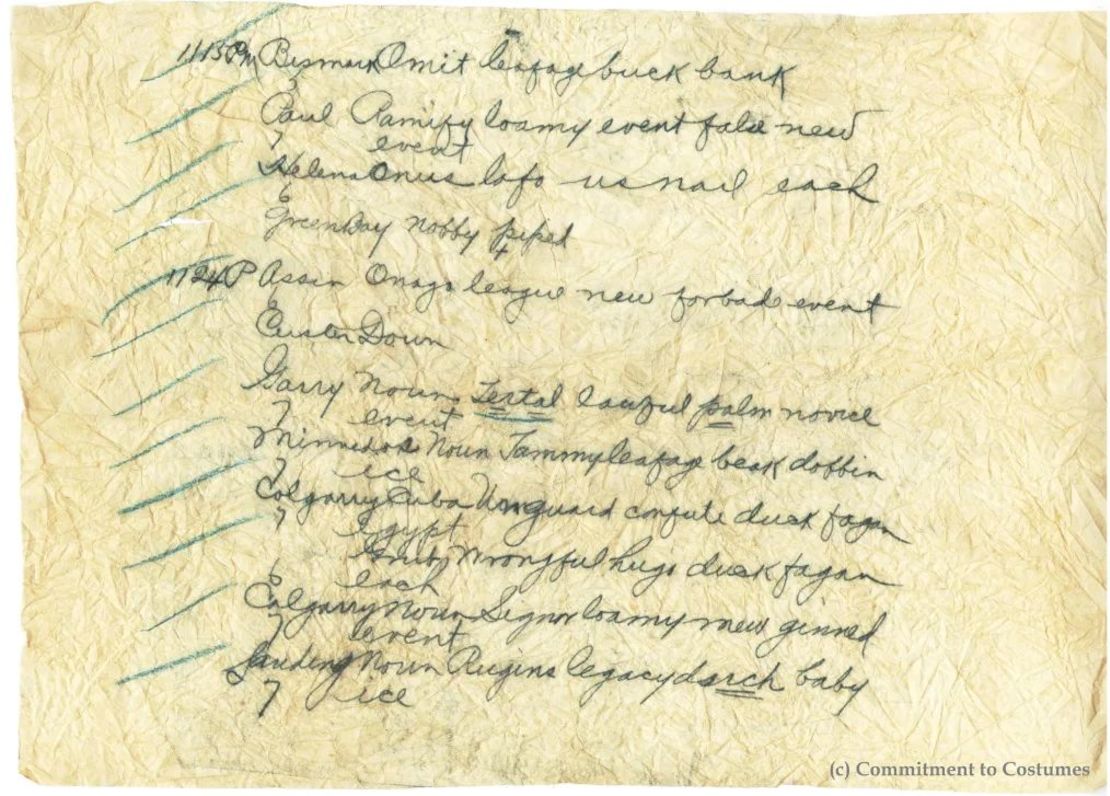 1113PM Bismark Omit leafage buck bank
Paul Ramify loamy event false new
7 event
Helena Onus lofo usnail each
Green Bay nobby pipet
1124P Assin Onago league new forbade event
Custer Down
Garry Noun Tertal lawful palm novice
7 event
Minnedos Noun Jammyleafage beak dobbin
7 ice
Calgarry Cuba Unguard confute duck fagan
7 Egypt
wrongful hugo duck fagan
each
Calgarry Noun Signor loamy new ginned
7 event
Landing Noun Rugins legacy duck baby
7 ice
(c) Commitment to Costumes